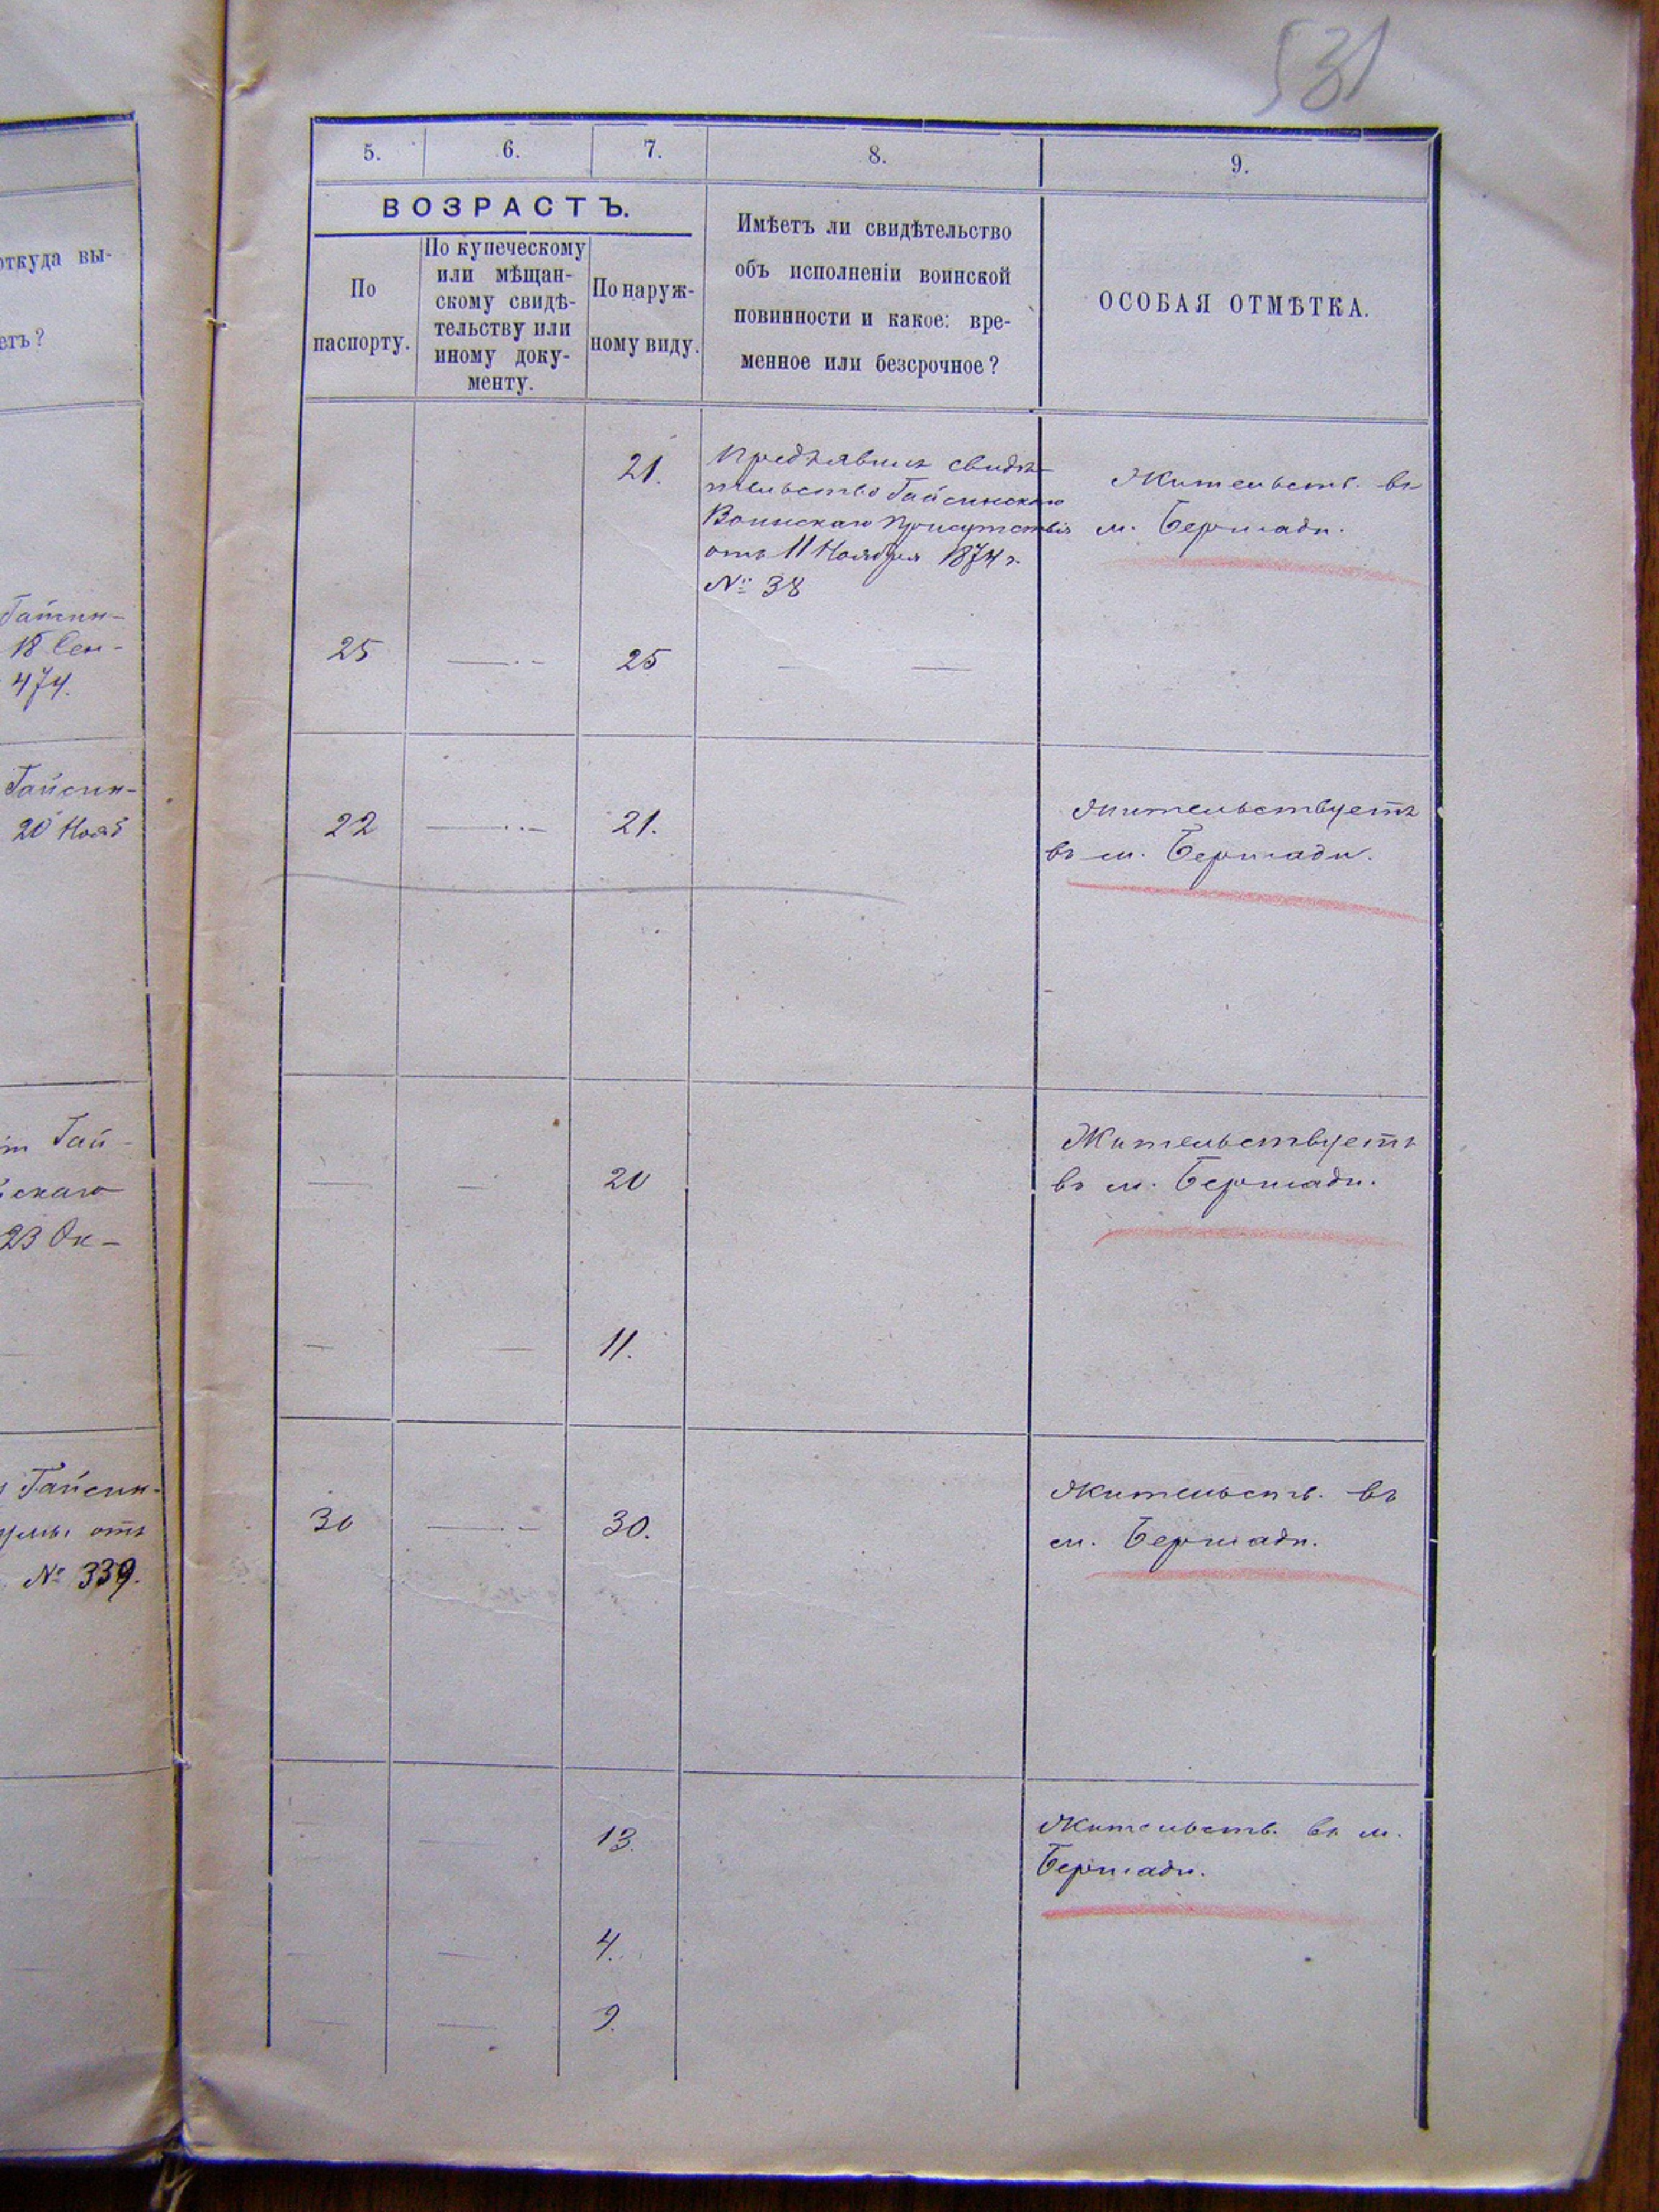 531
откуда вы-
етъ?
Гайсин-
18 Сен-
474.
Гайсин-
20 Нояб
Гай-
скаго
23 Ок-
Гайсин-
отъ
№ 339.
5. 6. 7. 8. 9.
ВОЗРАСТЪ.
По
паспорту.
По купеческому
или мѣщан-
скому свидѣ-
тельству или
иному доку-
менту.
По наруж-
ному виду.
Имѣетъ ли свидѣтельство
объ исполненіи воинской
повинности и какое: вре-
менное или безсрочное?
ОСОБАЯ ОТМѢТКА.
21.
Предъявилъ свидѣ-
тельство Гайсинскаго
Воинскаго Присутствія
отъ 11 Ноября 1874 г.
№ 38
Жительств. въ
м. Бершади.
25 — 25 — —
22 — 21.
Жительствуетъ
въ м. Бершади.
— — 20
Жительствуетъ
въ м. Бершади.
— — 11.
30 — 30.
Жительств. въ
м. Бершади.
13.
Жительств. въ м.
Бершади.
— — 4.
— — 9.